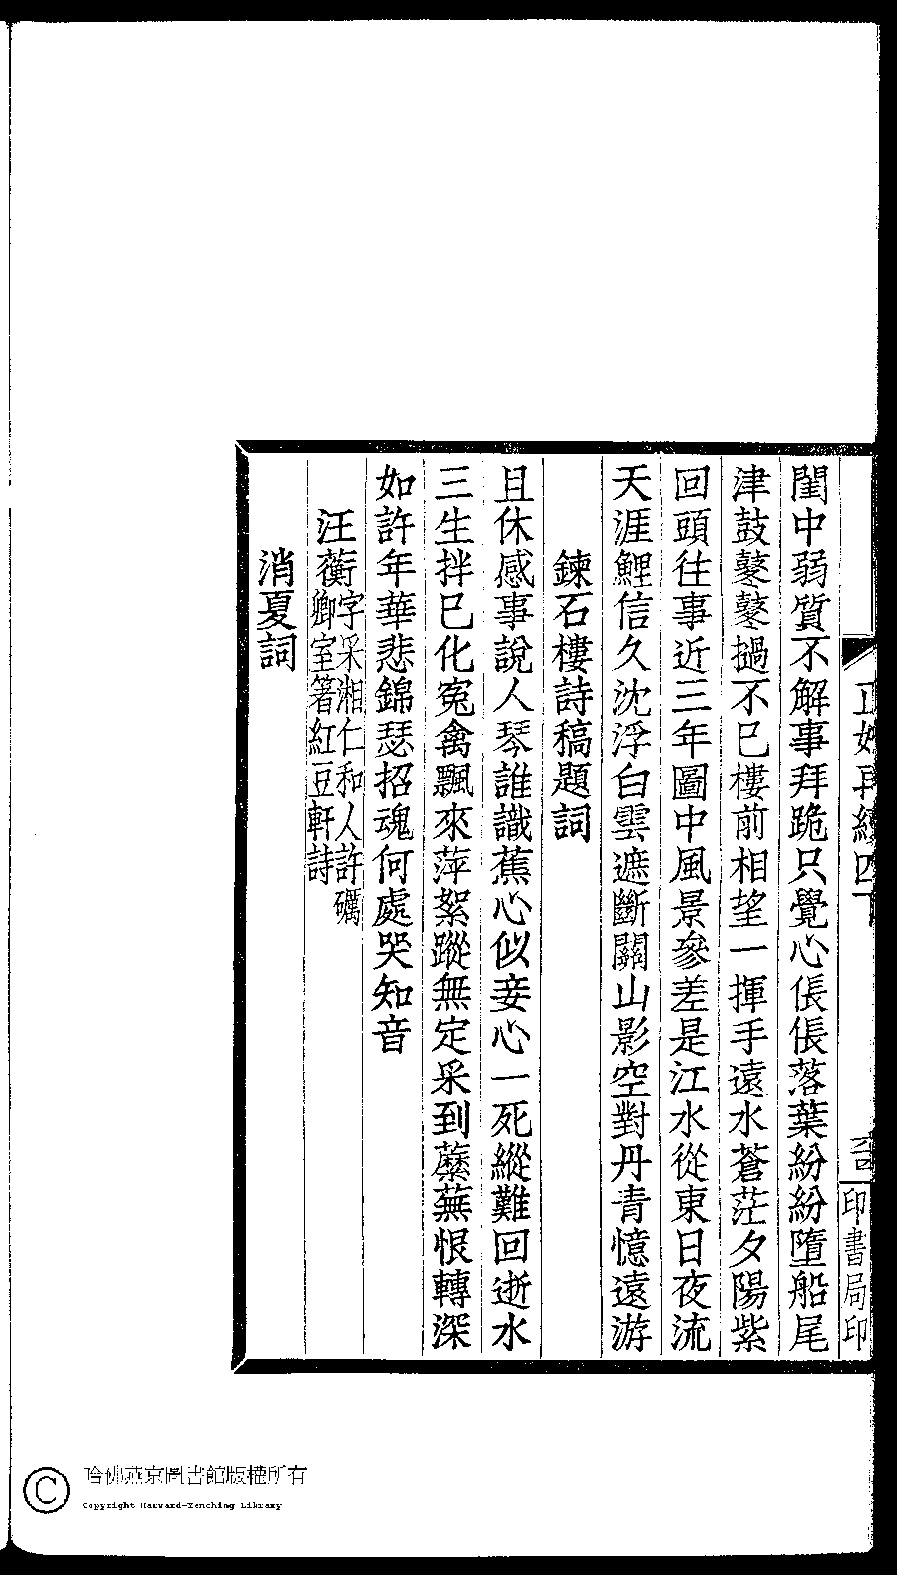 閨中弱質不解事拜跪只覺心倀倀落葉紛紛墮船尾
津鼓鼕鼕撾不已樓前相望一揮手遠水蒼茫夕陽紫
回頭往事近三年圖中風景參差是江水從東日夜流
天涯鯉信久沈浮白雲遮斷關山影空對丹青憶遠游
鍊石樓詩稿題詞
且休感事說人琴誰識蕉心似妾心一死縱難回逝水
三生拌已化寃禽飄來萍絮蹤無定采到蘼蕪恨轉深
如許年華悲錦瑟招魂何處哭知音
汪蘅字采湘仁和人許礪
卿室箸紅豆軒詩
消夏詞
正始再續四下
印書局印
哈佛燕京圖書館版權所有
Copyright Harvard-Yenching Library